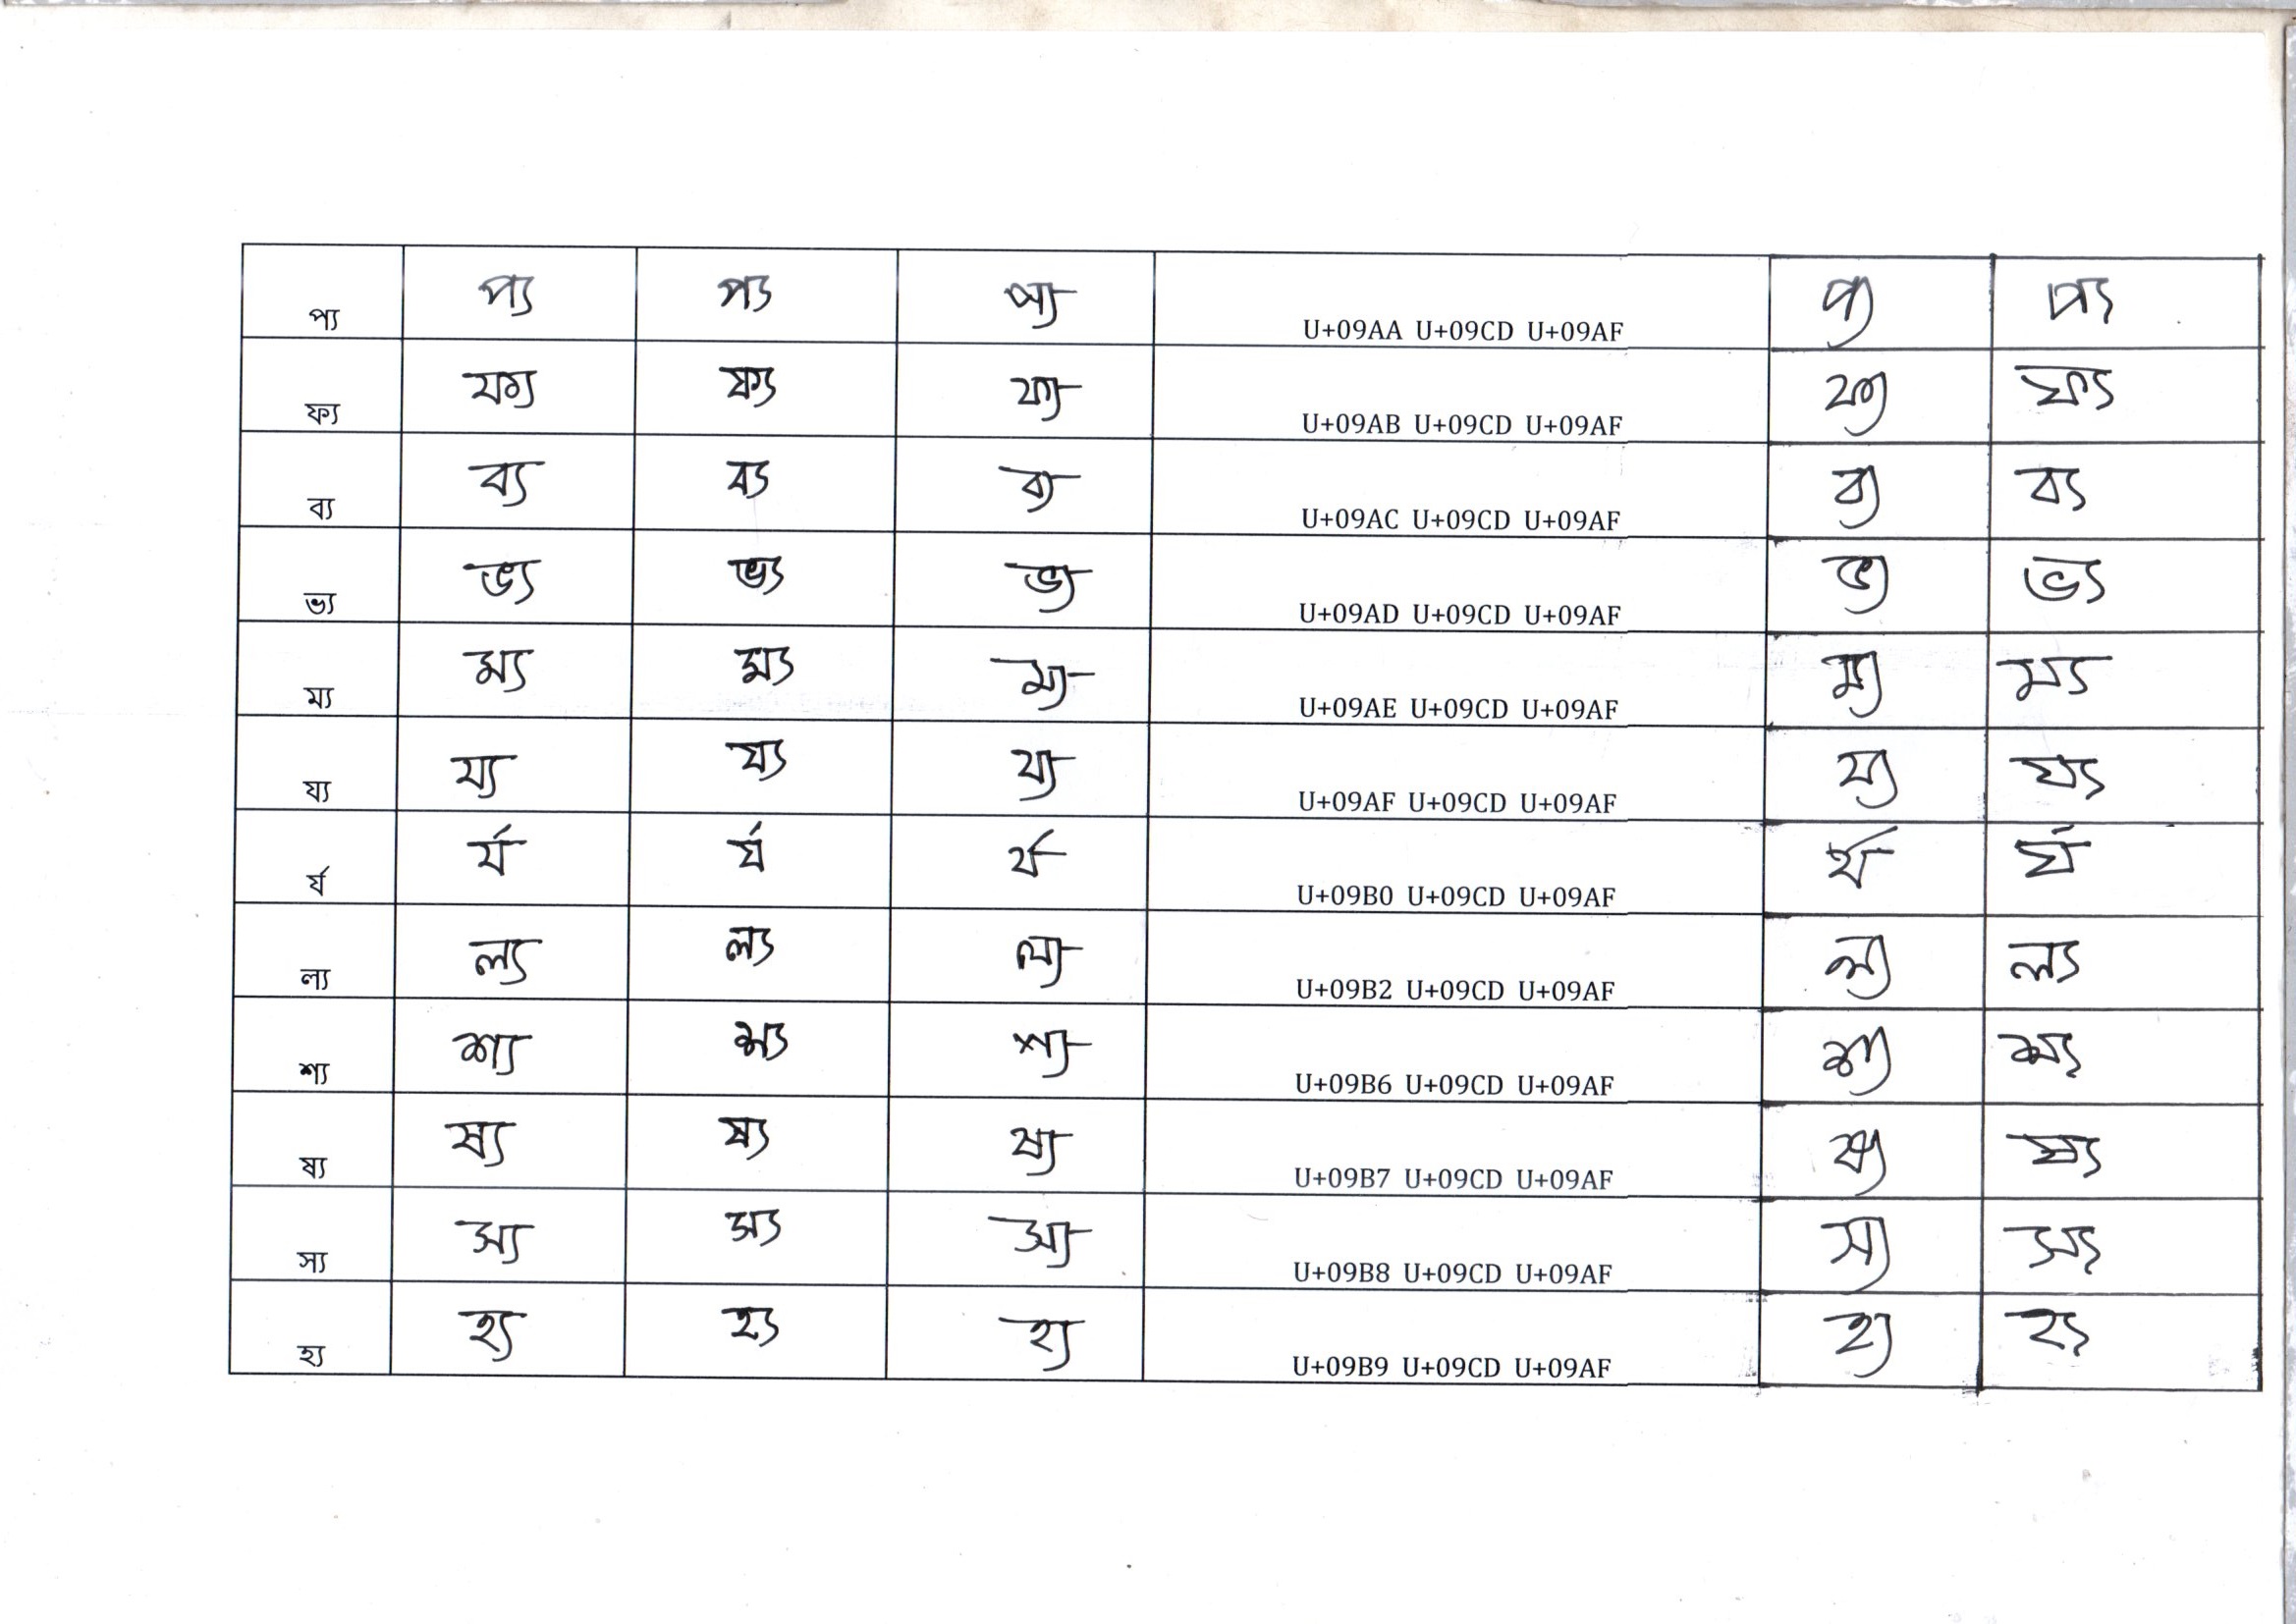 প্য প্য প্য প্য U+09AA U+09CD U+09AF প্য প্য
ফ্য ফ্য ফ্য ফ্য U+09AB U+09CD U+09AF ফ্য ফ্য
ব্য ব্য ব্য ব্য U+09AC U+09CD U+09AF ব্য ব্য
ভ্য ভ্য ভ্য ভ্য U+09AD U+09CD U+09AF ভ্য ভ্য
ম্য ম্য ম্য ম্য U+09AE U+09CD U+09AF ম্য ম্য
য্য য্য য্য য্য U+09AF U+09CD U+09AF য্য য্য
র্য র্য র্য র্য U+09B0 U+09CD U+09AF র্য র্য
ল্য ল্য ল্য ল্য U+09B2 U+09CD U+09AF ল্য ল্য
শ্য শ্য শ্য শ্য U+09B6 U+09CD U+09AF শ্য শ্য
ষ্য ষ্য ষ্য ষ্য U+09B7 U+09CD U+09AF ষ্য ষ্য
স্য স্য স্য স্য U+09B8 U+09CD U+09AF স্য স্য
হ্য হ্য হ্য হ্য U+09B9 U+09CD U+09AF হ্য হ্য